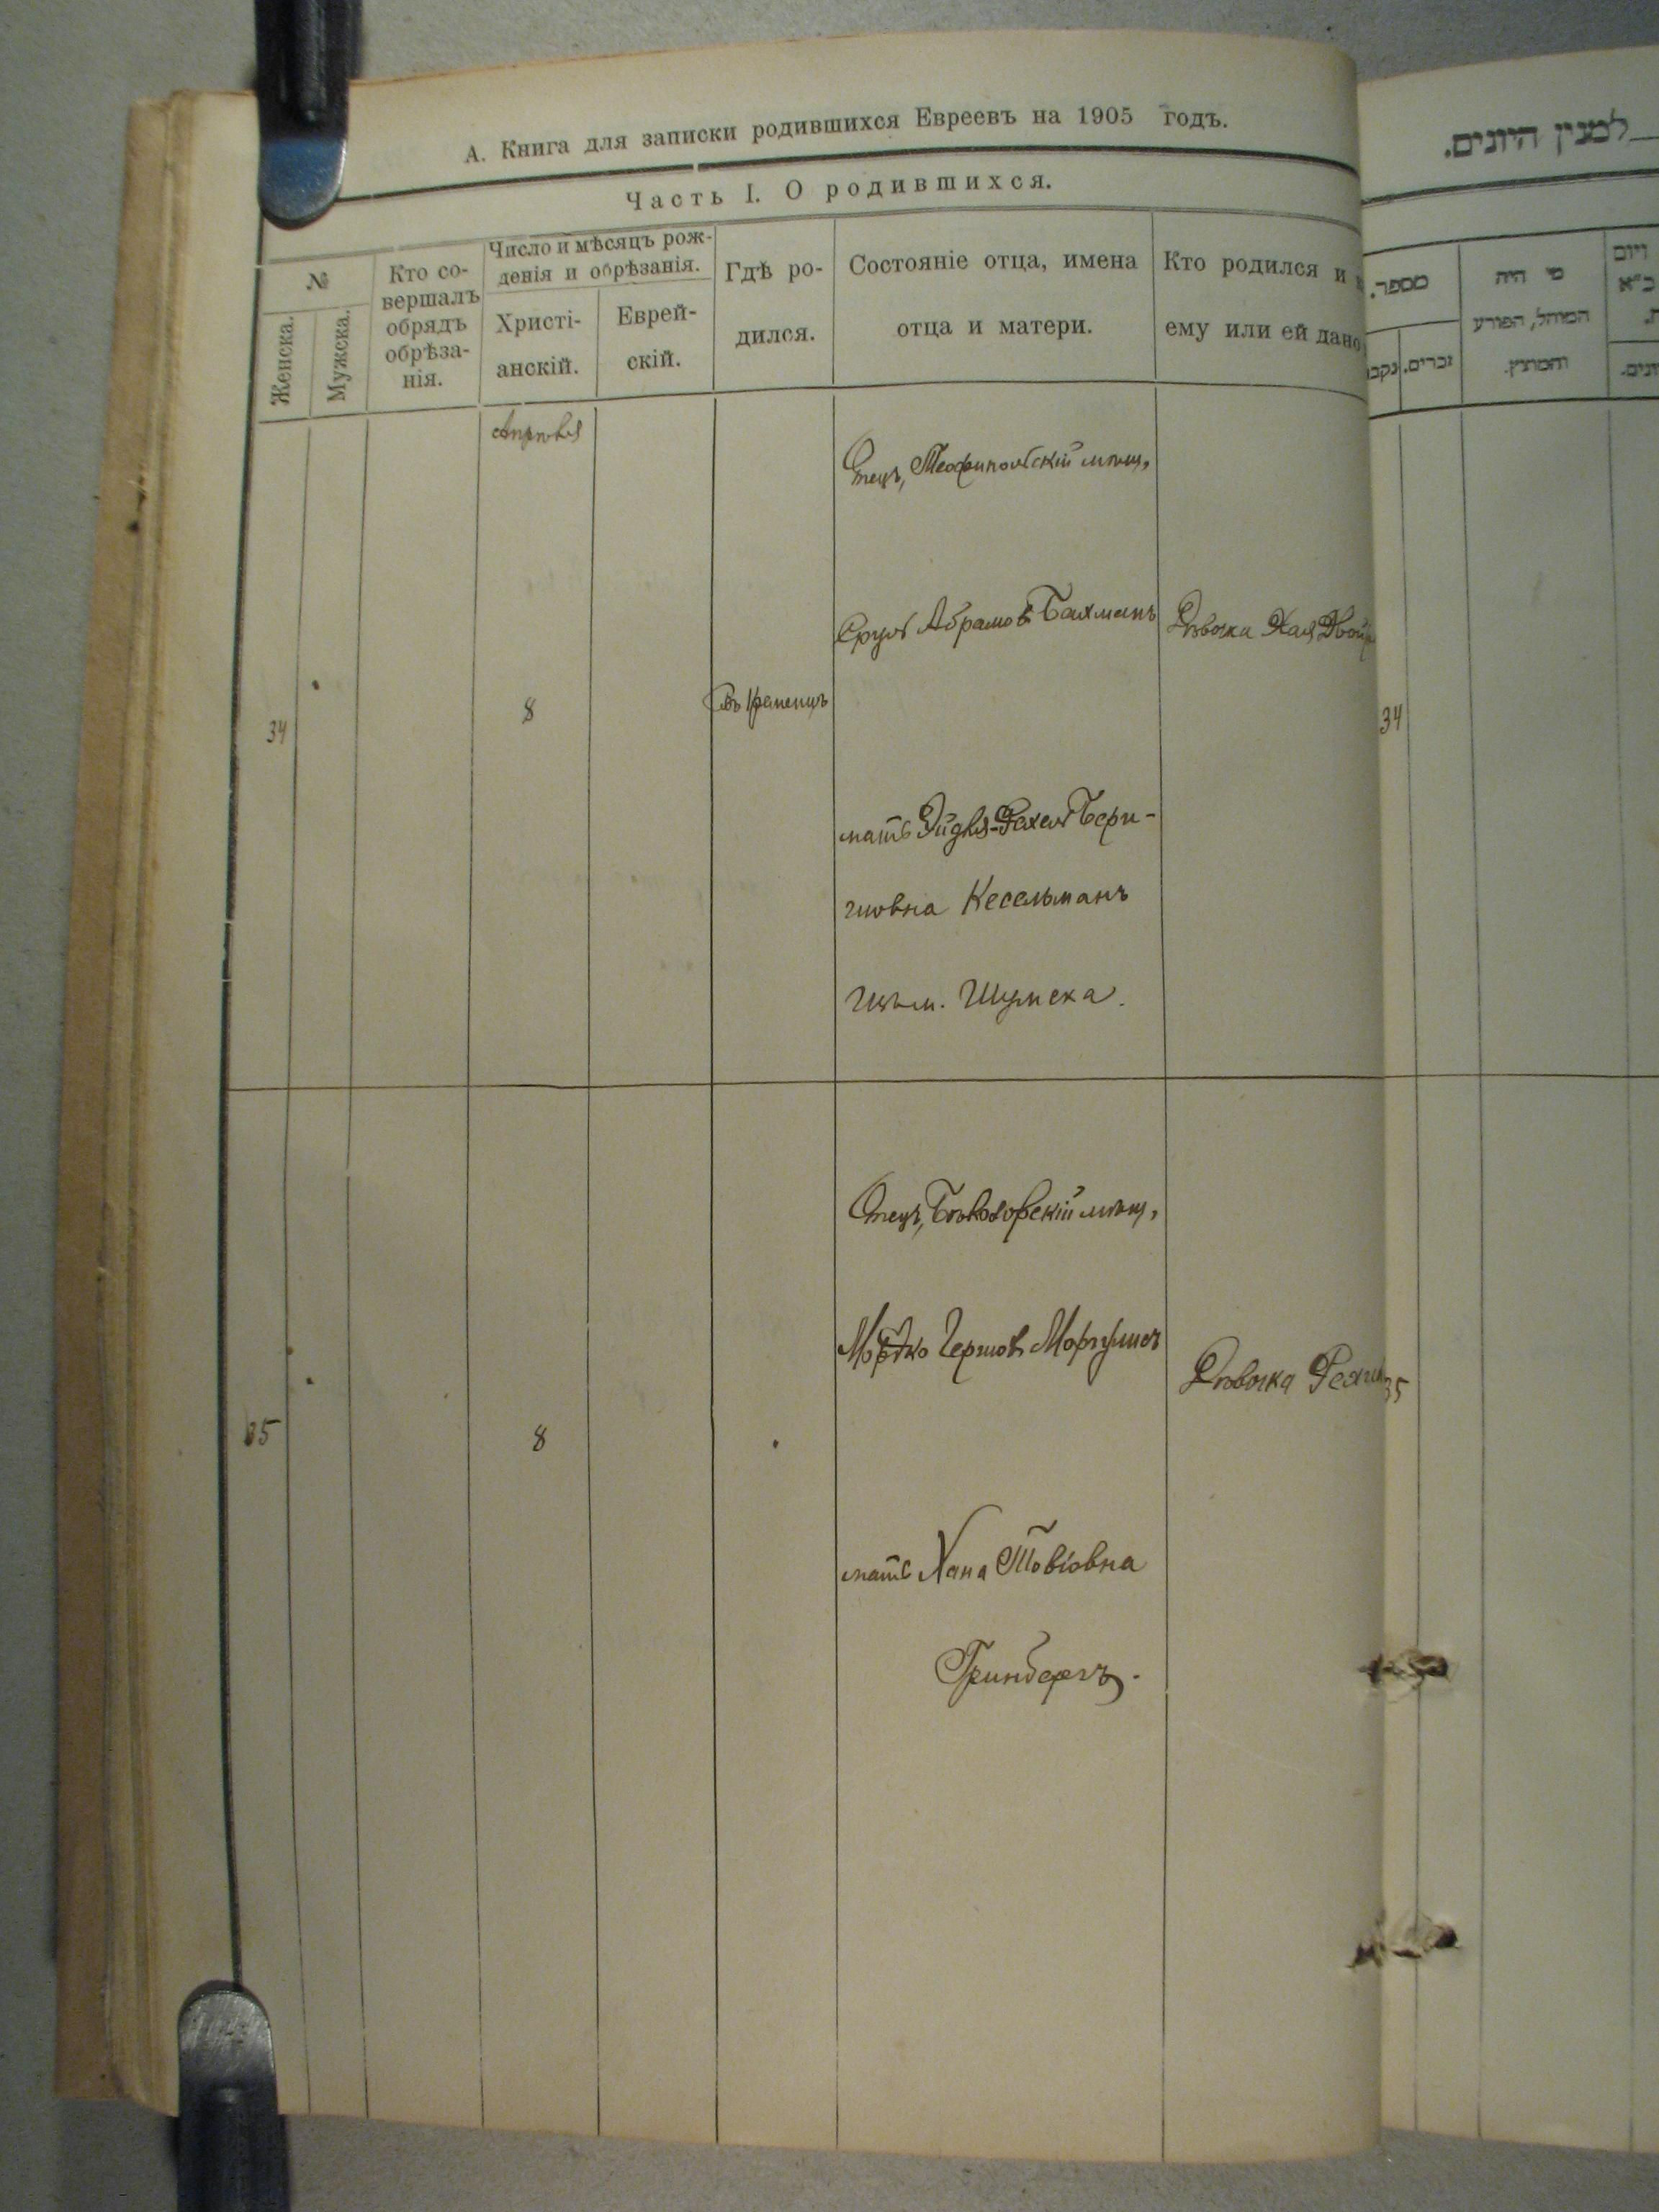 А. Книга для записки родившихся Евреевъ на 1905 годъ.
Часть I. О родившихся.
№
Женска.
Мужска.
Кто со-
вершалъ
обрядъ
обрѣза-
нія.
Число и мѣсяцъ рож-
денія и обрѣзанія.
Христі-
анскій.
Еврей-
скій.
Гдѣ ро-
дился.
Состояніе отца, имена
отца и матери.
Кто родился и
ему или ей дано
Апрѣля
34
8
Въ Кременцѣ
Отецъ, Теофипольскій мѣщ.
Сруль Абрамовъ Бахманъ
мать Эйдля-Рахель Бери-
шовна Кесельманъ
Шумска.
Дѣвочка Хая Двойра
35
8
Отецъ, мѣщ.
Мордко Гершовъ Моргулисъ
мать Хана Товіовна
Гринбергъ.
Дѣвочка
למנין היונים.
מספר.
זכרים.
מי היה
המוהל, הפורע
והמוצץ.
ויום
34
35